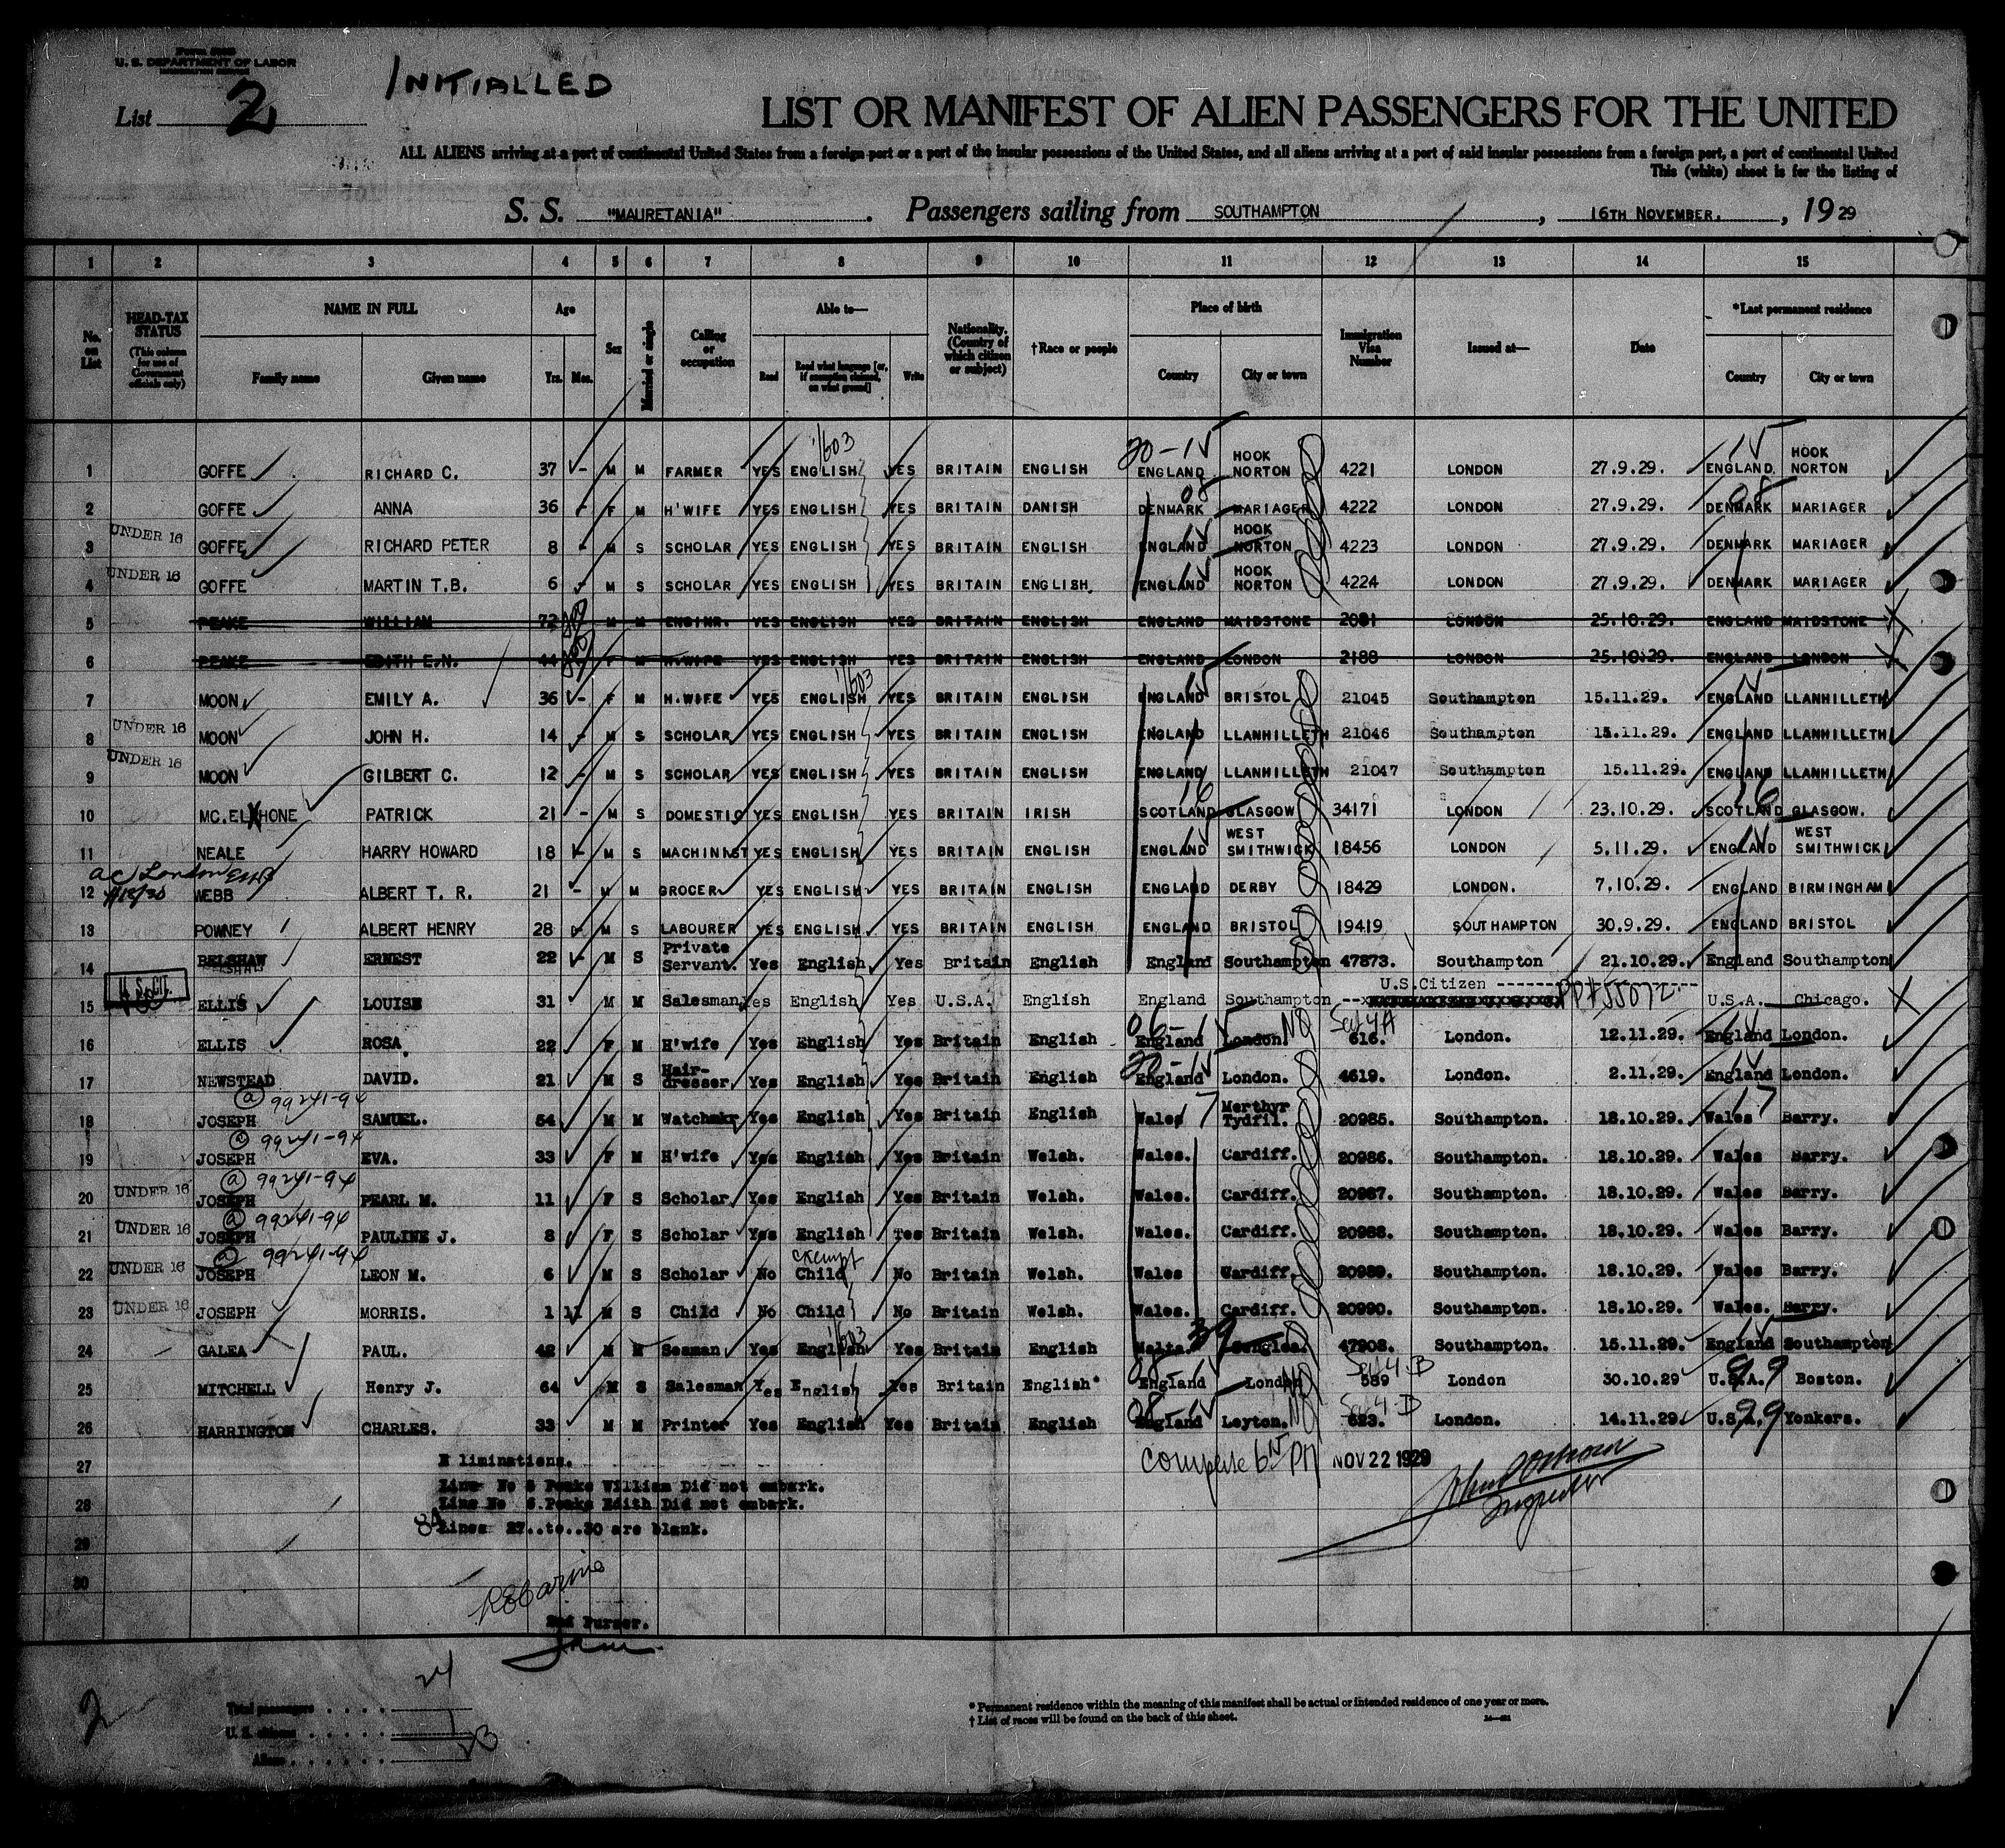 Form 500
U. S. DEPARTMENT OF LABOR
IMMIGRATION SERVICE
List 2
INITIALLED
LIST OR MANIFEST OF ALIEN PASSENGERS FOR THE UNITED
ALL ALIENS arriving at a port of continental United States from a foreign port or a port of the insular possessions of the United States, and all aliens arriving at a port of said insular possessions from a foreign port, a port of continental United
This (white) sheet is for the listing of
S. S. "MAURETANIA" . Passengers sailing from SOUTHAMPTON , 16TH NOVEMBER. , 19 29
1 2 3 4 5 6 7 8 9 10 11 12 13 14 15
No. on List
HEAD-TAX STATUS (This column for use of Government officials only)
NAME IN FULL Family name Given name
Age Yrs. Mos.
Sex
Married or single
Calling or occupation
Able to— Read Read what language [or, if exemption claimed, on what ground] Write
Nationality. (Country of which citizen or subject)
†Race or people
Place of birth Country City or town
Immigration Visa Number
Issued at—
Date
*Last permanent residence Country City or town
1 GOFFE RICHARD C. 37 - M M FARMER YES ENGLISH YES BRITAIN ENGLISH ENGLAND HOOK NORTON 4221 LONDON 27.9.29. ENGLAND. HOOK NORTON
2 GOFFE ANNA 36 - F M H'WIFE YES ENGLISH YES BRITAIN DANISH DENMARK MARIAGER 4222 LONDON 27.9.29. DENMARK MARIAGER
3 UNDER 16 GOFFE RICHARD PETER 8 - M S SCHOLAR YES ENGLISH YES BRITAIN ENGLISH ENGLAND HOOK NORTON 4223 LONDON 27.9.29. DENMARK MARIAGER
4 UNDER 16 GOFFE MARTIN T.B. 6 - M S SCHOLAR YES ENGLISH YES BRITAIN ENGLISH. ENGLAND HOOK NORTON 4224 LONDON 27.9.29. DENMARK MARIAGER
5 PEAKE WILLIAM 72 M M ENGINR. YES ENGLISH YES BRITAIN ENGLISH ENGLAND MAIDSTONE 2081 LONDON 25.10.29. ENGLAND MAIDSTONE
6 PEAKE EDITH E.N. 44 F M H.WIFE YES ENGLISH YES BRITAIN ENGLISH ENGLAND LONDON 2188 LONDON 25.10.29. ENGLAND LONDON
7 MOON EMILY A. 36 - F M H.WIFE YES ENGLISH YES BRITAIN ENGLISH ENGLAND BRISTOL 21045 Southampton 15.11.29. ENGLAND LLANHILLETH
8 UNDER 16 MOON JOHN H. 14 - M S SCHOLAR YES ENGLISH YES BRITAIN ENGLISH ENGLAND LLANHILLETH 21046 Southampton 15.11.29. ENGLAND LLANHILLETH
9 UNDER 16 MOON GILBERT C. 12 - M S SCHOLAR YES ENGLISH YES BRITAIN ENGLISH ENGLAND LLANHILLETH 21047 Southampton 15.11.29. ENGLAND LLANHILLETH
10 MC.ELHONE PATRICK 21 - M S DOMESTIC YES ENGLISH YES BRITAIN IRISH SCOTLAND GLASGOW 34171 LONDON 23.10.29. SCOTLAND GLASGOW.
11 NEALE HARRY HOWARD 18 - M S MACHINIST YES ENGLISH YES BRITAIN ENGLISH ENGLAND WEST SMITHWICK 18456 LONDON 5.11.29. ENGLAND WEST SMITHWICK
12 WEBB ALBERT T. R. 21 - M M GROCER YES ENGLISH YES BRITAIN ENGLISH ENGLAND DERBY 18429 LONDON. 7.10.29. ENGLAND BIRMINGHAM
13 POWNEY ALBERT HENRY 28 - M S LABOURER YES ENGLISH YES BRITAIN ENGLISH ENGLAND BRISTOL 19419 SOUTHAMPTON 30.9.29. ENGLAND BRISTOL
14 BELSHAW ERNEST 22 - M S Private Servant. Yes English Yes Britain English England Southampton 47873. Southampton 21.10.29. England Southampton
15 U. S. CIT. ELLIS LOUISE 31 M M Salesman Yes English Yes U.S.A. English England Southampton -- U.S.Citizen ---------- PP#55072 U.S.A. Chicago.
16 ELLIS ROSA 22 F M H'wife Yes English Yes Britain English England London. Sec 4A 616. London. 12.11.29. England London.
17 NEWSTEAD DAVID. 21 M S Hair-dresser Yes English Yes Britain English England London. 4619. London. 2.11.29. England London.
18 JOSEPH SAMUEL. 54 M M Watchmkr Yes English Yes Britain English Wales Merthyr Tydfil. 20985. Southampton. 18.10.29. Wales Barry.
19 JOSEPH EVA. 33 F M H'wife Yes English Yes Britain Welsh. Wales. Cardiff. 20986. Southampton. 18.10.29. Wales Barry.
20 UNDER 16 JOSEPH PEARL M. 11 F S Scholar Yes English Yes Britain Welsh. Wales. Cardiff. 20987. Southampton. 18.10.29. Wales Barry.
21 UNDER 16 JOSEPH PAULINE J. 8 F S Scholar Yes English Yes Britain Welsh. Wales. Cardiff. 20988. Southampton. 18.10.29. Wales Barry.
22 UNDER 16 JOSEPH LEON M. 6 M S Scholar No exempt Child No Britain Welsh. Wales Wardiff. 20989. Southampton. 18.10.29. Wales Barry.
23 UNDER 16 JOSEPH MORRIS. 1 11 M S Child No Child No Britain Welsh. Wales. Cardiff. 20990. Southampton. 18.10.29. Wales. Barry.
24 GALEA PAUL. 42 M M Seaman Yes English Yes Britain English Malta. Senglea. 47908. Southampton. 15.11.29. England Southampton
25 MITCHELL Henry J. 64 M S Salesman Yes English Yes Britain English England London Sec 4-B 589 London 30.10.29 U.S.A. Boston.
26 HARRINGTON CHARLES. 33 M M Printer Yes English Yes Britain English England Leyton. Sec 4-D 623. London. 14.11.29. U.S.A. Yonkers.
27 E liminations. NOV 22 1929
Line No 5 Peake William Did not embark.
28 Line No 6.Peake Edith Did not embark.
Lines 27..to..30 are blank.
29
30
2nd Purser.
Inspector
2
Total passengers . . . . 24
U. S. citizens . . . . . 1
Aliens . . . . . . 23
* Permanent residence within the meaning of this manifest shall be actual or intended residence of one year or more.
† List of races will be found on the back of this sheet.